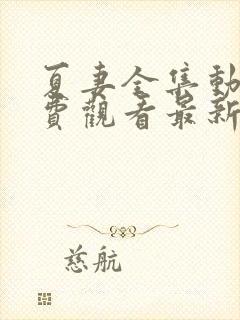 夏妻全集動
費觀看最新
慈航